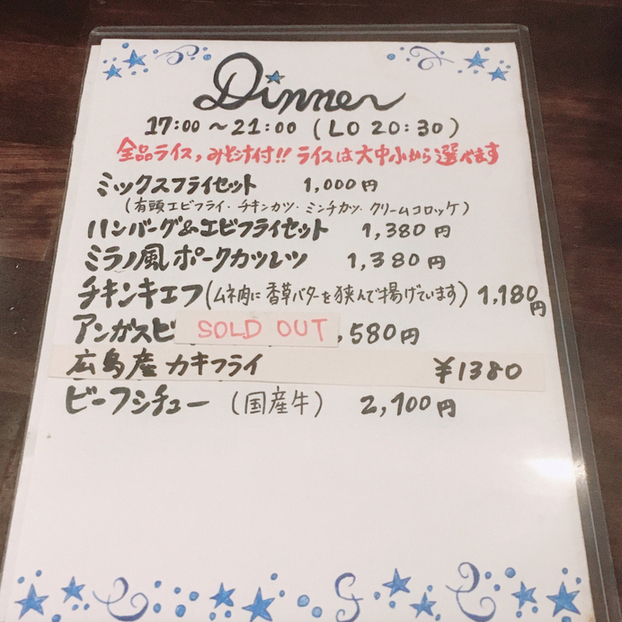 Dinner
17:00～21:00 (LO 20:30)
全品ライス,みそ汁付!! ライスは大中小から選べます
ミックスフライセット 1,000円
(有頭エビフライ・チキンカツ・ミンチカツ・クリームコロッケ)
ハンバーグ&エビフライセット 1,380円
ミラノ風ポークカツレツ 1,380円
チキンキエフ(ムネ肉に香草バターを挟んで揚げています) 1,180円
アンガスビ SOLD OUT ,580円
広島産カキフライ ¥1380
ビーフシチュー (国産牛) 2,100円